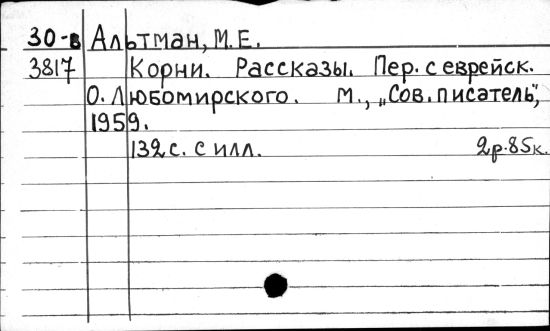 30-в Альтман, М.Е.
3817 Корни. Рассказы. Пер. с еврейск.
О. Любомирского. М., „Сов. писатель",
1959.
132 с. с илл. 2р.85к.